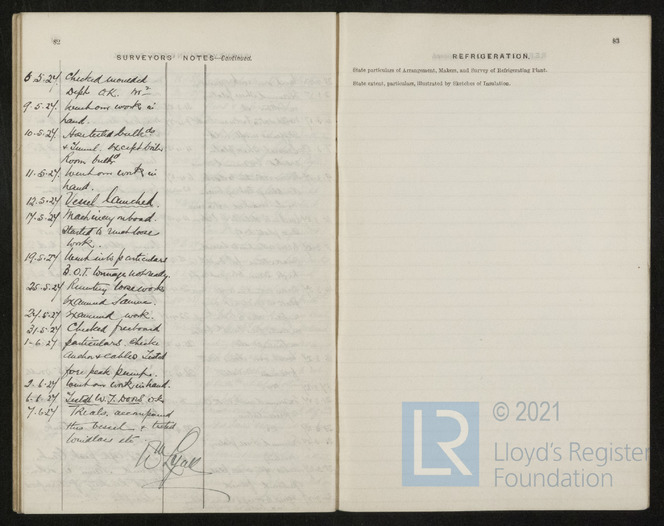 82
SURVEYORS' NOTES—Continued.
8-5-24 Checked moulded
Depth O.K.
9-5-24 Went over works in
hand.
10-5-24 Hose tested bulkhds
& Tunnel. except Boiler
Room bulkhd
11-5-24 Went over works in
hand.
12-5-24 Vessel Launched.
17-5-24 Machinery onboard.
Started to
work.
19-5-24 Went into particulars
B.O.T. tonnage not ready.
25-5-24 works
examined same.
24-5-24 examined work.
31-5-24 Checked freeboard
1-6-24 particulars. Checked
anchors & cables Tested
fore peak pumps.
2-6-24 went over work in hand.
6-6-24 Tested W.T. Doors
7-6-24 Trials. accompanied
this Vessel & tested
windlass etc
Wm Lyall
83
REFRIGERATION.
State particulars of Arrangement, Makers, and Survey of Refrigerating Plant.
State extent, particulars, illustrated by Sketches of Insulation.
LR
© 2021
Lloyd's Register
Foundation